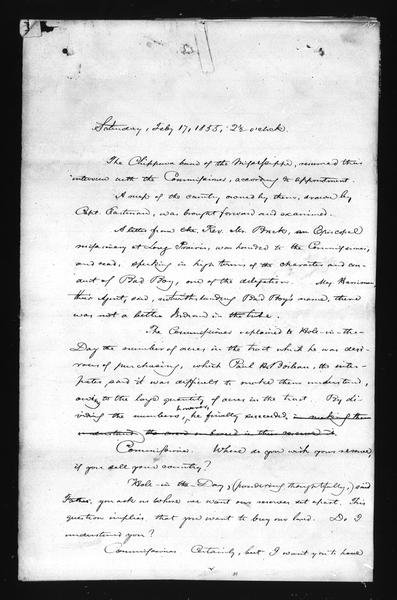 Saturday, Feby 17, 1855, 2½ o'clock.
The Chippewa band of the Mississippi, resumed their
interview with the Commissioner, according to appointment.
A map of the country owned by them, drawn by
Capt. Eastman, was brought forward and examined.
A letter from the Rev. Mr. Breck, an Episcopal
missionary at Long Prairie, was handed to the Commissioner,
and read, speaking in high terms of the character and con-
duct of Bad Boy, one of the delegation. Maj. Herriman
their Agent, said, notwithstanding Bad Boy's name, there
was not a better Indian in the tribe.
The Commissioner explained to Hole-in-the-
Day the number of acres in the tract which he was desi-
rous of purchasing, which Paul H. Beaulieu, the inter-
preter, said it was difficult to make them understand,
owing to the large quantity of acres in the tract. By di-
viding the numbers, however, he finally succeeded in making them
understand the
Commissioner. Where do you wish your reserve,
if you sell your country?
Hole-in-the-Day, (pondering thoughtfully,) said
Father, you ask us where we want our reserves set apart. This
question implies that you want to buy our land. Do I
understand you?
Commissioner Certainly, but I want you to have